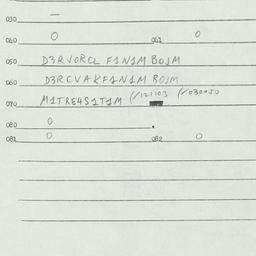 030 —
040 0 041 0
050 D3RVORCL F1N1M BOJM
060 D3RCVAKF1N1M BOJM
070 M1TRE4S1T1M (/121103 (/030450
080 0
081 0 082 0